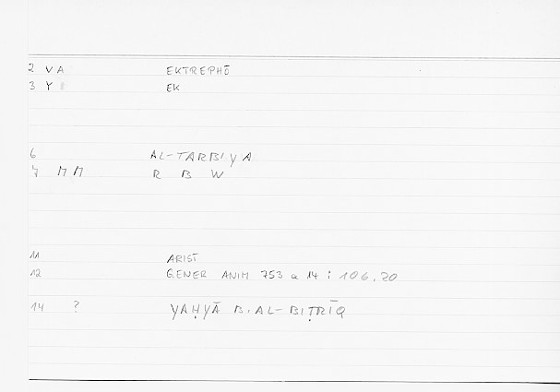 2 VA EKTREPHŌ
3 Y EK
6 AL-TARBIYA
7 MM R B W
11 ARIST
12 GENER ANIM 753 a 14 : 106.20
14 ? YAḤYĀ B. AL-BIṬRĪQ